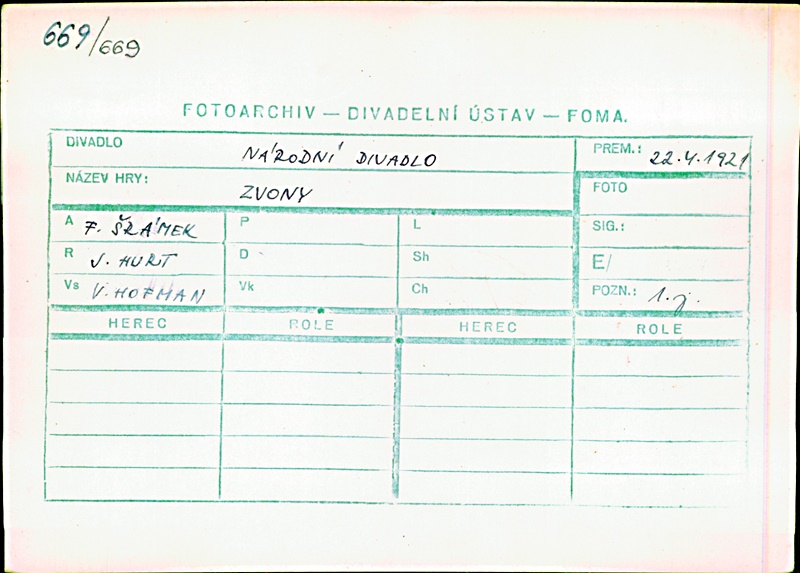 669/669
FOTOARCHIV — DIVADELNÍ ÚSTAV — FOMA.
DIVADLO NÁRODNÍ DIVADLO PREM.: 22.4.1921
NÁZEV HRY: ZVONY FOTO
A F. ŠRÁMEK P L SIG.:
R J. HURT D Sh E/
Vs V. HOFMAN Vk Ch POZN.: 1. j.
HEREC ROLE HEREC ROLE